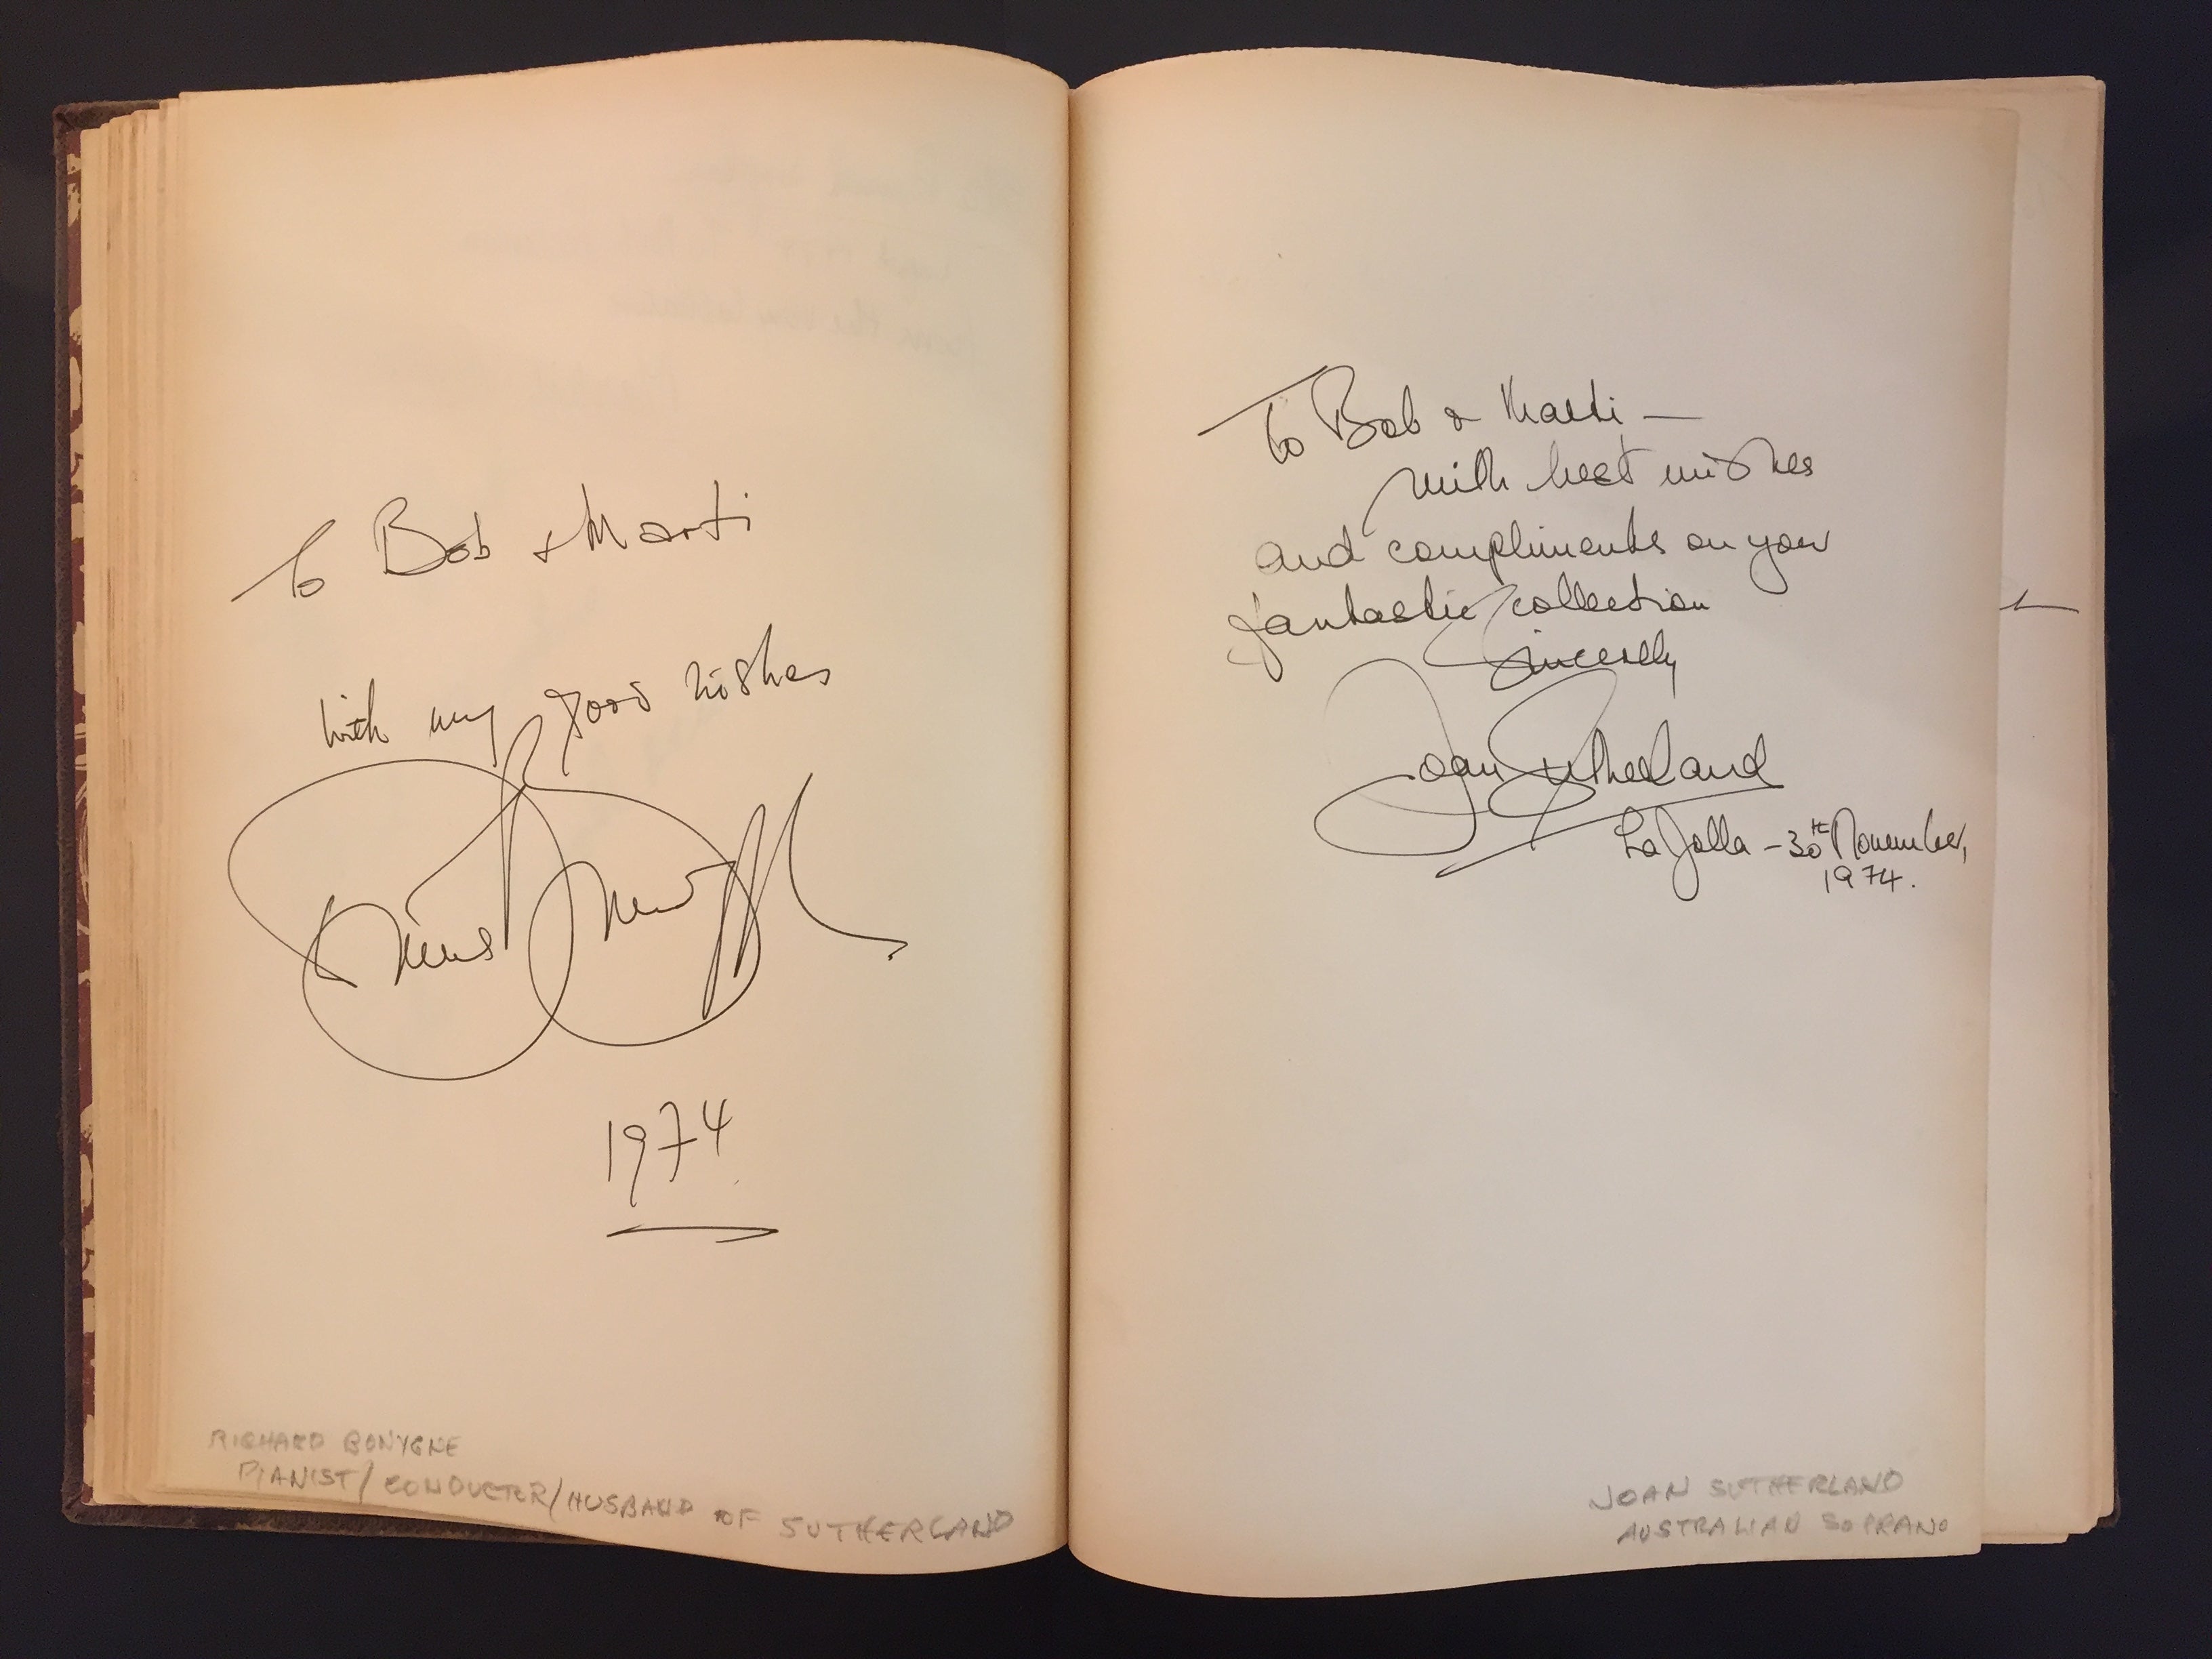 To Bob + Marti
with my good wishes
1974
RICHARD BONYGNE
PIANIST/CONDUCTOR/HUSBAND OF SUTHERLAND
To Bob & Marti —
with best wishes
and compliments on your
fantastic collection
Sincerely
Joan Sutherland
La Jolla – 30th November,
1974.
JOAN SUTHERLAND
AUSTRALIAN SOPRANO